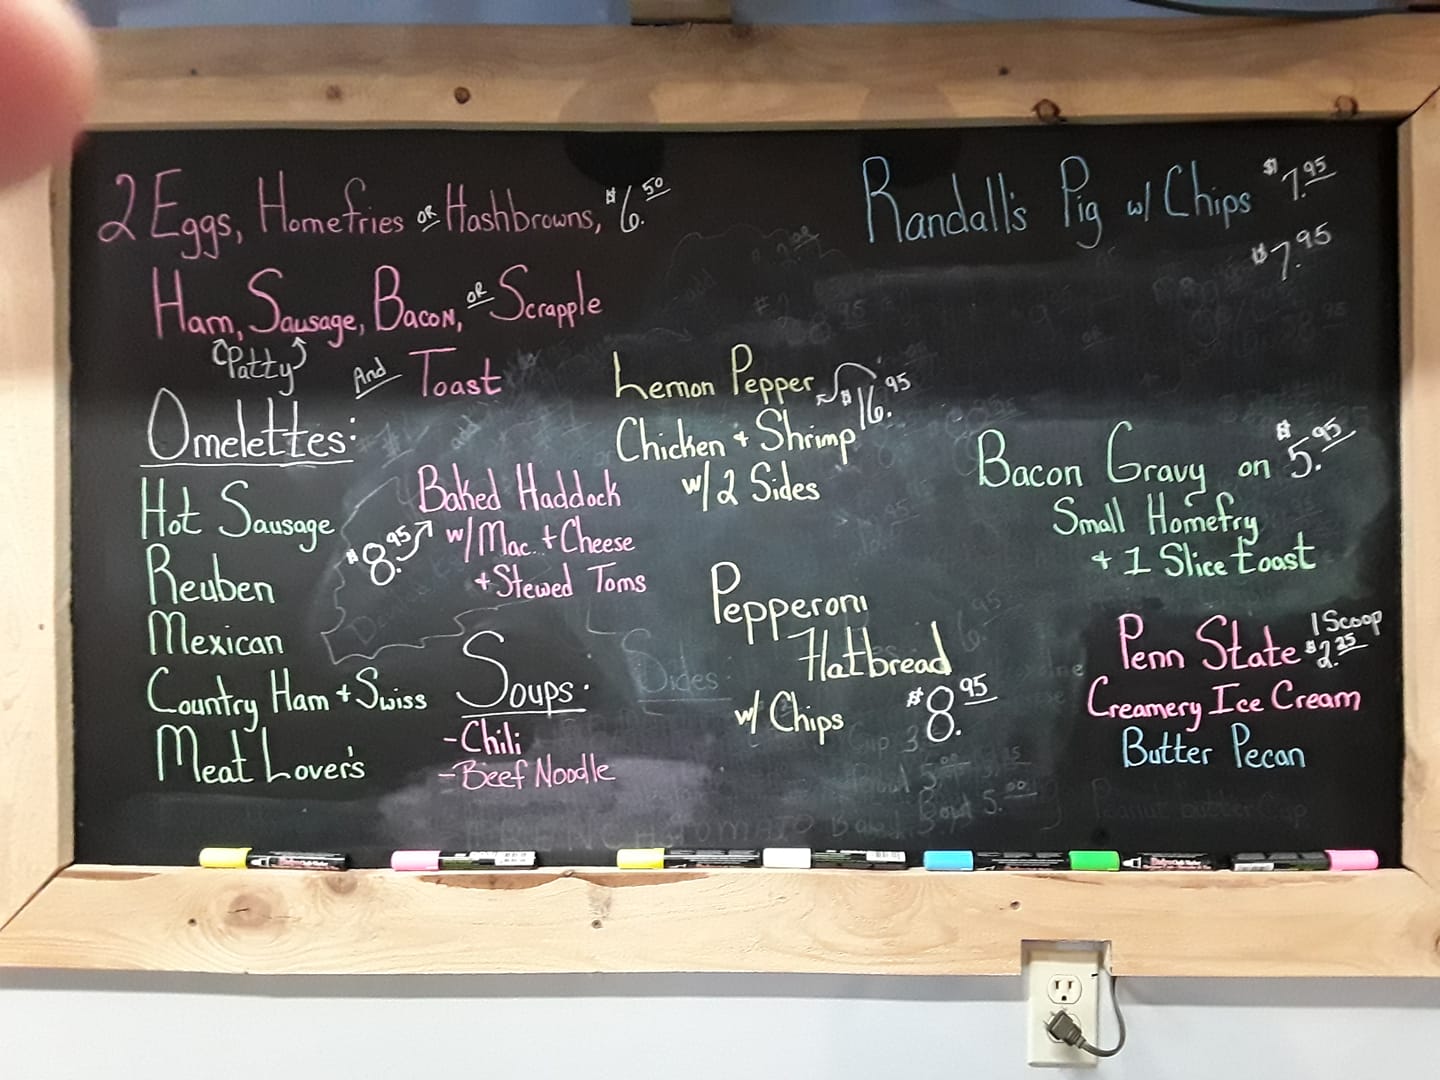 2 Eggs, Homefries OR Hashbrowns, $6.50
Ham, Sausage, Bacon, OR Scrapple
Patty
And Toast
Omelettes:
Hot Sausage
Reuben
Mexican
Country Ham + Swiss
Meat Lover's
Baked Haddock
$8.95 w/ Mac. + Cheese
+ Stewed Toms
Soups:
- Chili
- Beef Noodle
Lemon Pepper $16.95
Chicken + Shrimp
w/ 2 Sides
Sides:
Pepperoni
Flatbread
w/ Chips $8.95
Randall's Pig w/ Chips $7.95
$7.95
Bacon Gravy on $5.95
Small Homefry
+ 1 Slice toast
Penn State 1 Scoop $2.25
Creamery Ice Cream
Butter Pecan
Bowl 5.00
Peanut butter Cup